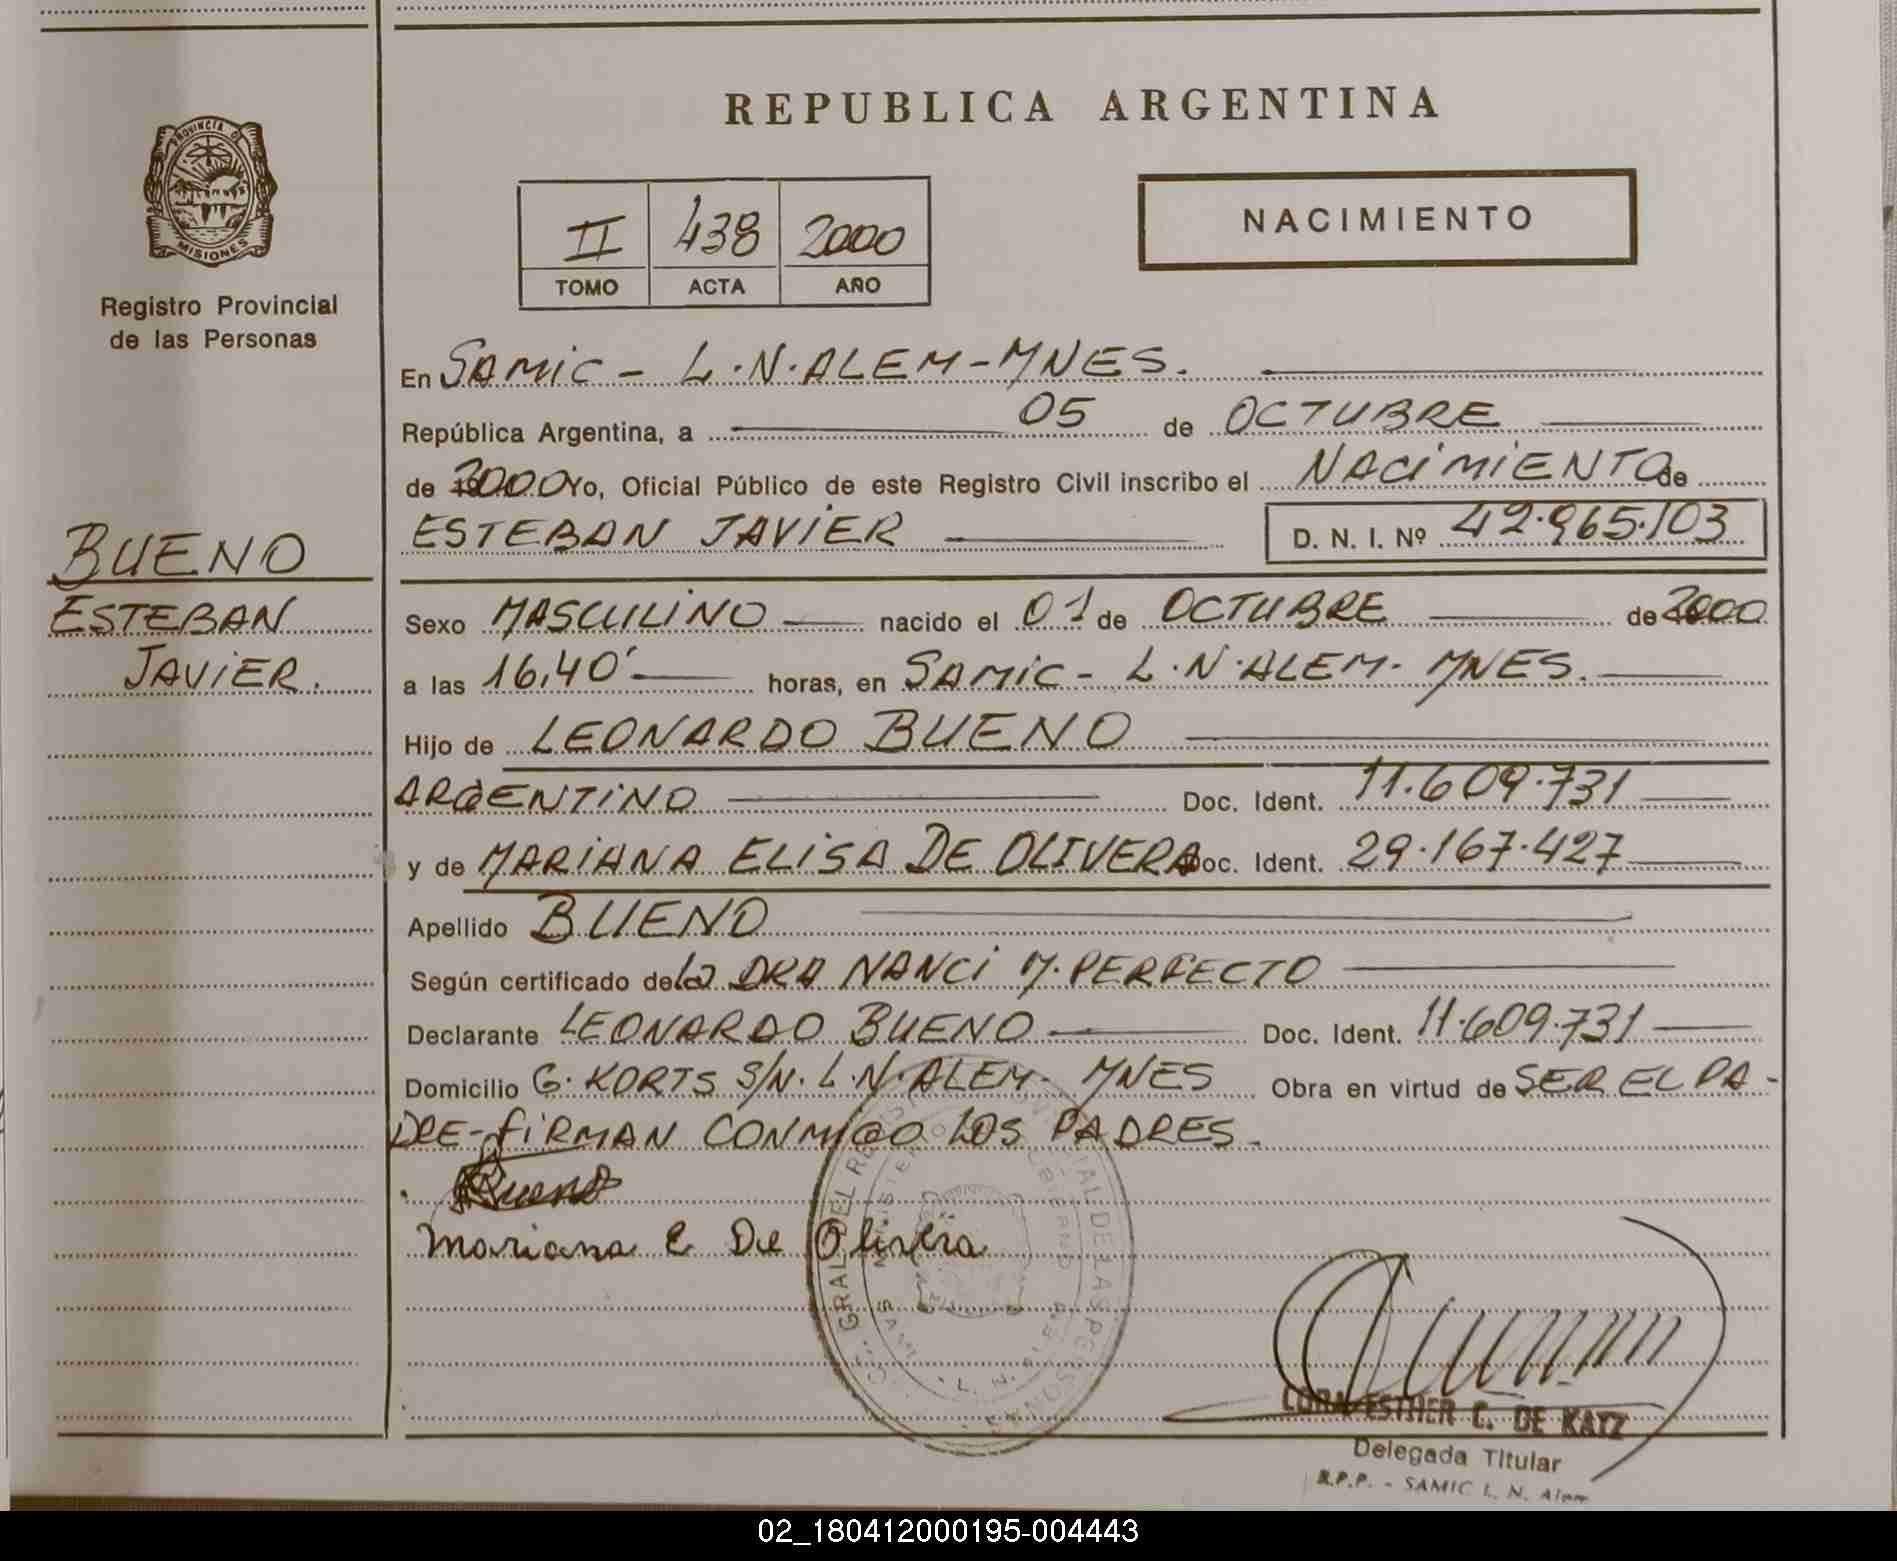 REPUBLICA ARGENTINA
PROVINCIA DE
MISIONES
Registro Provincial
de las Personas
II 438 2000
TOMO ACTA AÑO
NACIMIENTO
En SAMIC - L.N.ALEM - MNES.
República Argentina, a 05 de OCTUBRE
de 2000 Yo, Oficial Público de este Registro Civil inscribo el NACIMIENTO de
ESTEBAN JAVIER D. N. I. Nº 42.965.103
BUENO
ESTEBAN
JAVIER.
Sexo MASCULINO nacido el 01 de OCTUBRE de 2000
a las 16,40' horas, en SAMIC - L.N.ALEM- MNES.
Hijo de LEONARDO BUENO
ARGENTINO Doc. Ident. 11.609.731
y de MARIANA ELISA DE OLIVERA Doc. Ident. 29.167.427
Apellido BUENO
Según certificado de la DRA NANCI M. PERFECTO
Declarante LEONARDO BUENO Doc. Ident. 11.609.731
Domicilio G. KORTS S/N. L.N.ALEM- MNES Obra en virtud de SER EL PA-
DRE-FIRMAN CONMIGO LOS PADRES.
Bueno
Mariana E De Olivera
CORA ESTHER C. DE KATZ
Delegada Titular
R.P.P. - SAMIC L. N. Alem
02_180412000195-004443